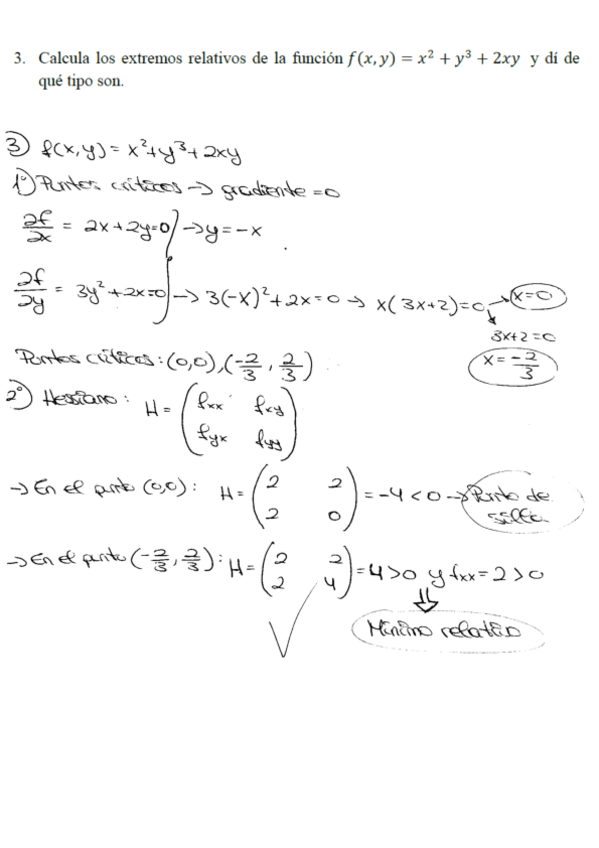 3. Calcula los extremos relativos de la función f(x, y) = x² + y³ + 2xy y dí de
qué tipo son.
3) f(x,y) = x²+y³+2xy
1º) Puntos críticos → gradiente = 0
∂f/∂x = 2x+2y=0 → y = -x
∂f/∂y = 3y²+2x=0 → 3(-x)²+2x=0 → x(3x+2)=0 → x=0
3x+2=0
Puntos críticos: (0,0), (-2/3, 2/3) x = -2/3
2º) Hessiano: H = (fxx fxy
fyx fyy)
→ En el punto (0,0): H = (2 2
2 0) = -4 < 0 → Punto de
silla
→ En el punto (-2/3, 2/3): H = (2 2
2 4) = 4>0 y fxx = 2>0
⇓
Mínimo relativo